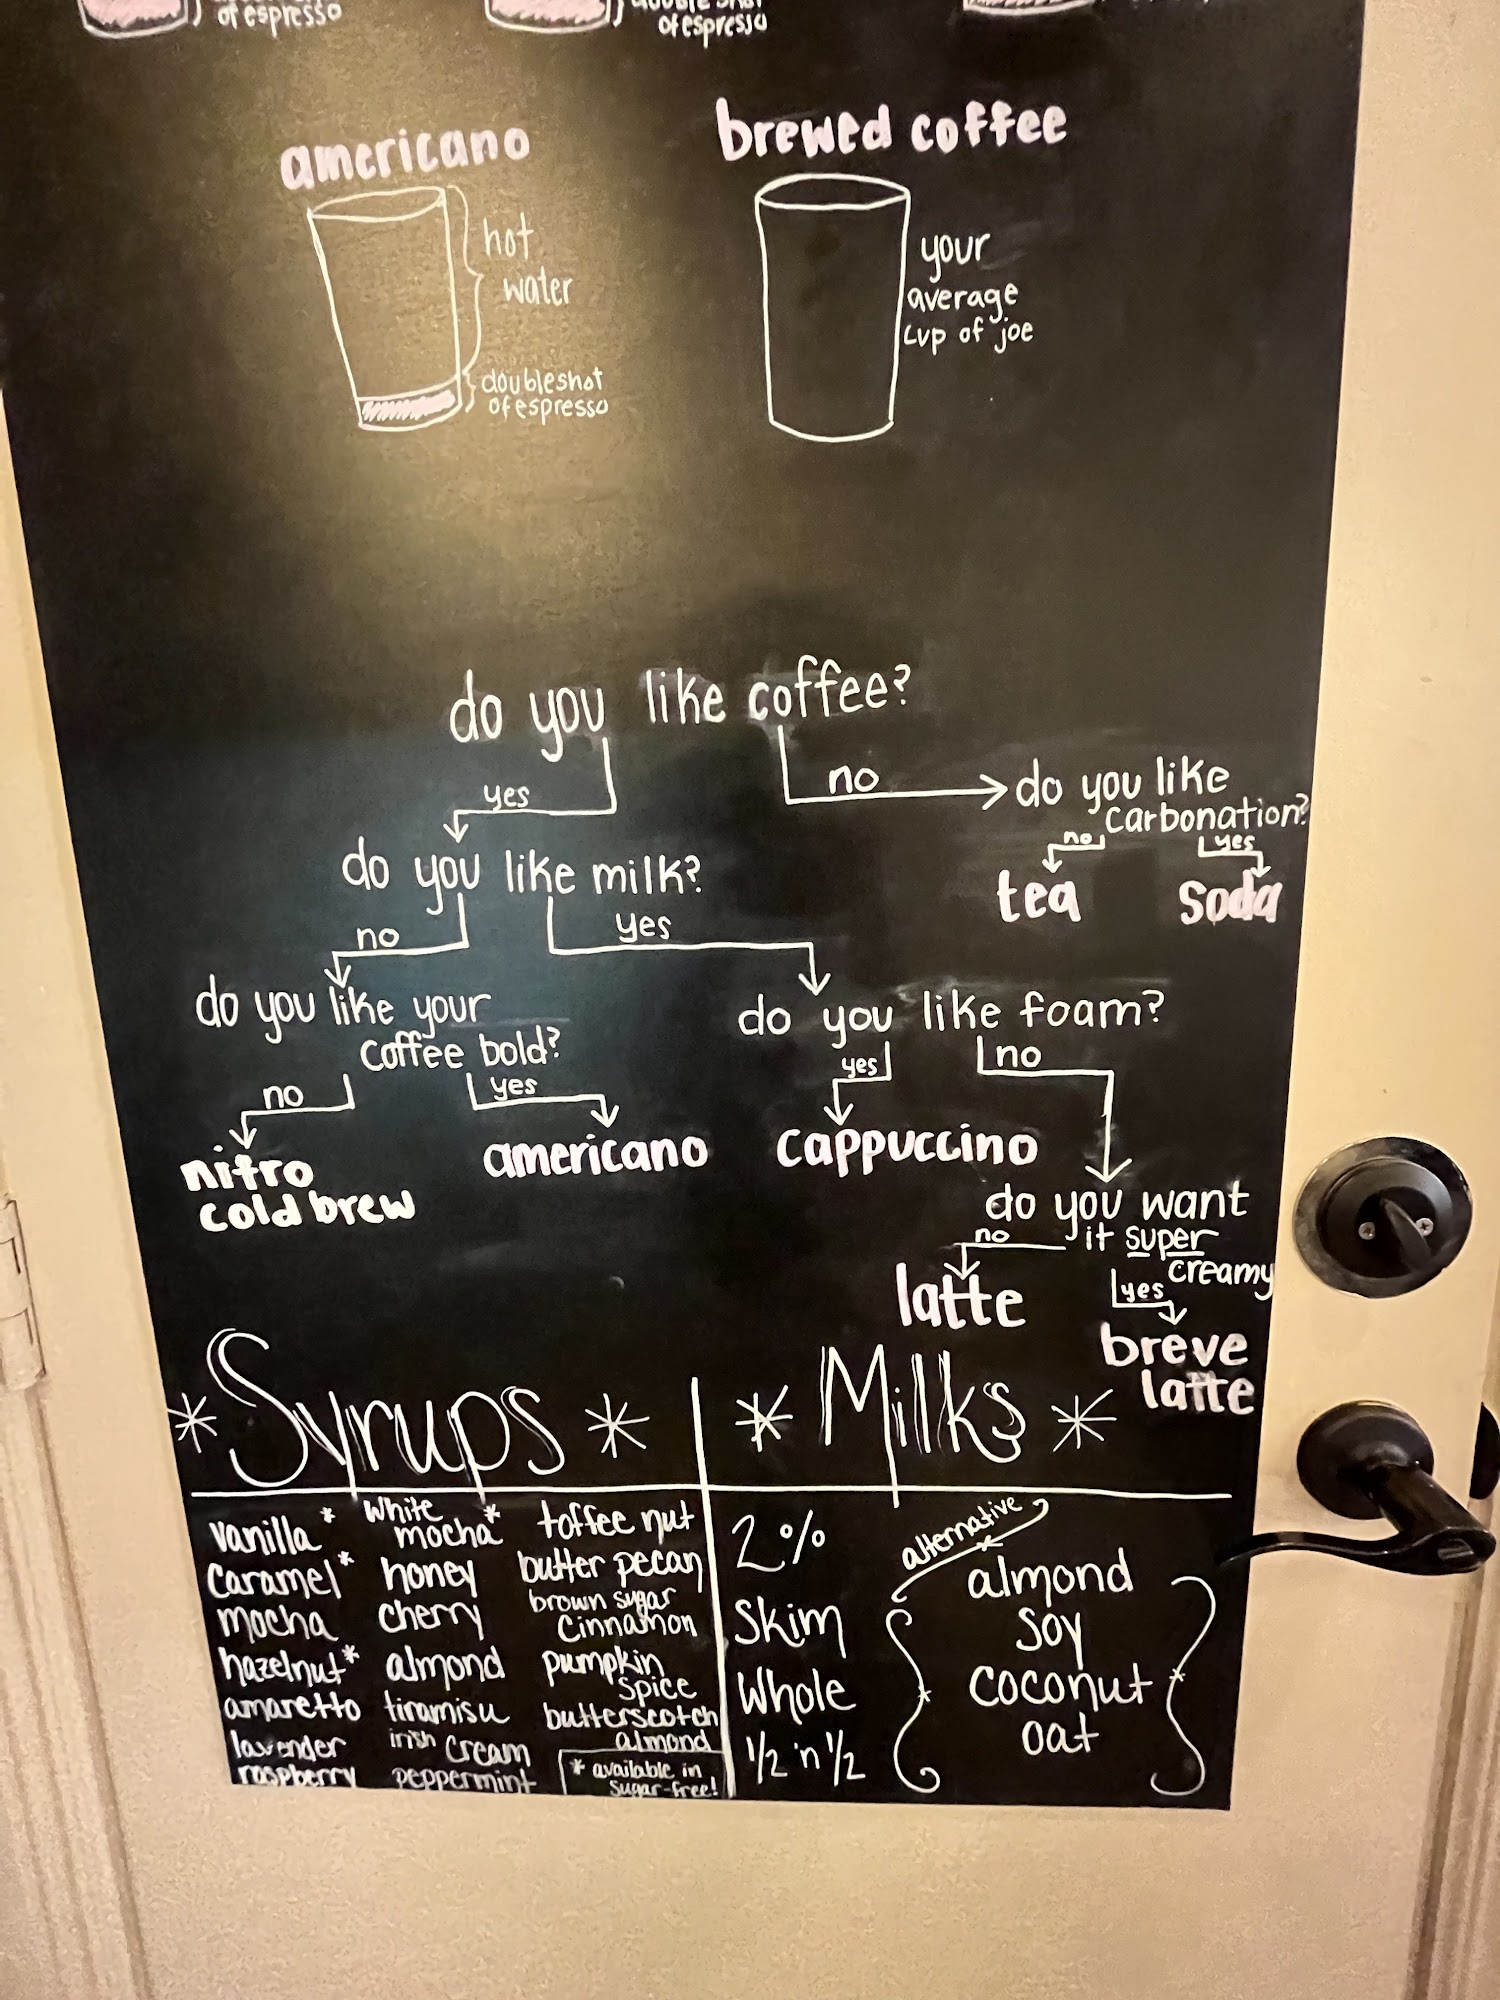 of espresso
double shot
of espresso
americano
hot
water
doubleshot
of espresso
brewed coffee
your
average
cup of joe
do you like coffee?
yes
no
do you like
carbonation?
no
yes
tea
soda
do you like milk?
no
yes
do you like your
coffee bold?
no
yes
nitro
cold brew
americano
do you like foam?
yes
no
cappuccino
do you want
it super
creamy
no
yes
latte
breve
latte
* Syrups *
vanilla *
caramel *
mocha
hazelnut *
amaretto
lavender
raspberry
white
mocha *
honey
cherry
almond
tiramisu
irish cream
peppermint
toffee nut
butter pecan
brown sugar
cinnamon
pumpkin
spice
butterscotch
almond
* available in
sugar-free!
* Milks *
2%
Skim
Whole
1/2 'n 1/2
alternative
almond
soy
coconut
oat